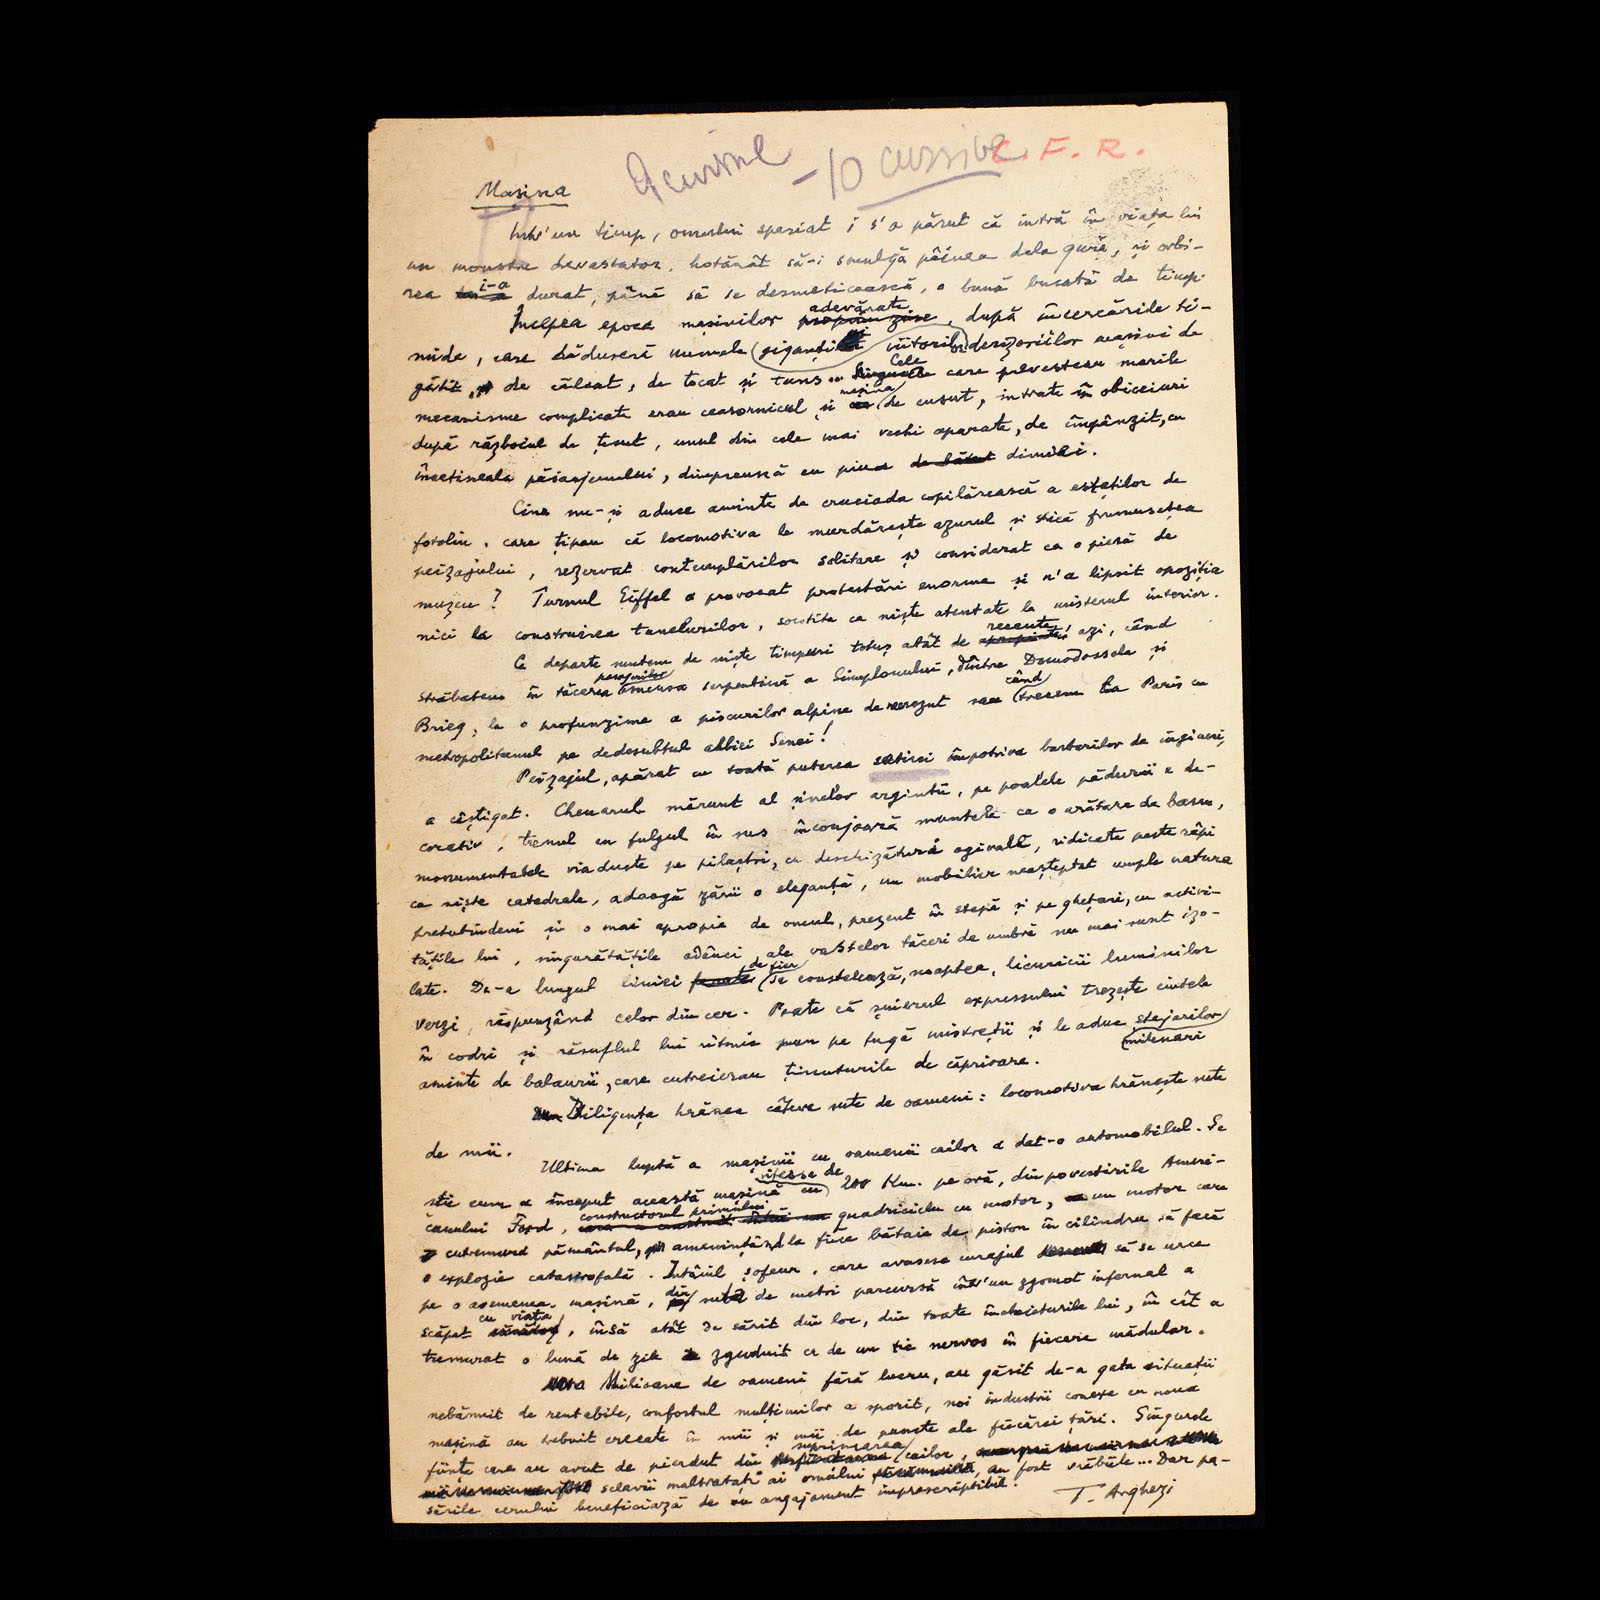 10 cursive C. F. R.
Mașina
Într'un timp, omului speriat i s'a părut că intră în viața lui
un monstru devastator, hotărât să-i smulgă pâinea dela gură, și orbi-
rea i-a durat, până să se desmeticească, o bună bucată de timp.
Începea epoca mașinilor adevărate, după încercările ti-
mide, care dăduseră numele giganților viitori derizoriilor mașini de
gătit, de călcat, de tocat și tuns... Cele care prevesteau marile
mecanisme complicate erau ceasornicul și mașina de cusut, intrate în obiceiuri
după războiul de țesut, unul din cele mai vechi aparate, de împânzit, cu
încetineala păianjenului, dimpreună cu piua dimiei.
Cine nu-și aduce aminte de cruciada copilărească a esteților de
fotoliu, care țipau că locomotiva le murdărește azurul și strică frumusețea
peizajului, rezervat contemplărilor solitare și considerat ca o piesă de
muzeu? Turnul Eiffel a provocat protestări enorme și n'a lipsit opoziția
nici la construirea tunelurilor, socotite ca niște atentate la misterul interior.
Ce departe suntem de niște timpuri totuș atât de recente, azi, când
străbatem în tăcerea imensa serpentină a Simplonului, dintre Domodossola și
Brieg, la o profunzime a piscurilor alpine de necrezut sau când trecem la Paris cu
metropolitanul pe dedesubtul albiei Senei!
Peizajul, apărat cu toată puterea satirei împotriva barbarilor de ingineri,
a câștigat. Chenarul mărunt al șinelor argintii, pe poalele pădurii e de-
corativ, trenul cu fulgul în sus înconjoară muntele ca o arătare de basm,
monumentalele viaducte pe pilaștri, cu deschizătură ogivală, ridicate peste râpi
ca niște catedrale, adaogă zării o eleganță, un mobilier neașteptat umple natura
pretutindeni și o mai apropie de omul, prezent în stepă și pe ghețari, cu activi-
tățile lui, singurătățile adânci ale vastelor tăceri de umbră nu mai sunt izo-
late. De-a lungul liniei de fier se constelează, noaptea, licuricii luminilor
verzi, răspunzând celor din cer. Poate că șuierul expressului trezește ciutele
în codri și răsuflul lui ritmic pun pe fugă mistreții și le aduc stejarilor
milenari
aminte de balaurii, care cutreierau ținuturile de căprioare.
Diligența hrănea câteva sute de oameni: locomotiva hrănește sute
de mii.
Ultima luptă a mașinii cu oamenii cailor a dat-o automobilul. Se
știe cum a început această mașină cu viteze de 200 Km. pe oră, din povestirile Ameri-
canului Ford, constructorul primului quadriciclu cu motor, un motor care
cutremura pământul, amenințând la fiece bătaie de piston în cilindru să facă
o explozie catastrofală. Întâiul șofeur, care avusese curajul să se urce
pe o asemenea mașină, din sută de metri parcursă într'un zgomot infernal a
scăpat cu viața, însă atât de sărit din loc, din toate încheieturile lui, în cît a
tremurat o lună de zile zguduit ca de un tic nervos în fiecare mădular.
Milioane de oameni fără lucru, au găsit de-a gata situații
nebănuit de rentabile, confortul mulțimilor a sporit, noi industrii conexe cu noua
mașină au trebuit create în mii și mii de puncte ale fiecărei țări. Singurele
ființe care au avut de pierdut din suprimarea cailor,
sclavii maltratați ai omului, au fost vrăbiile... Dar pa-
sările cerului beneficiază de un angajament imprescriptibil.
T. Arghezi